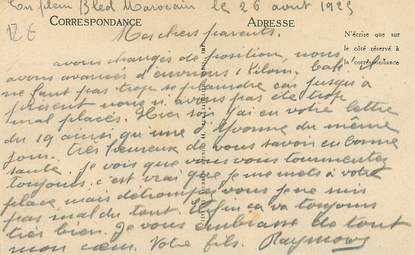 En plein Bled Marocain le 26 avril 1925
CORRESPONDANCE
ADRESSE
12 €
N'écrire que sur
le côté réservé à
la correspondance
Mes chers parents.
avons changés de position, nous
avons avancés d'environs 1 kilom.
ne faut pas trop se plaindre car jusqu'à
présent nous n'avons pas été trop
mal placés. Hier soir j'ai eu votre lettre
du 19 ainsi qu'une d'Yvonne du même
jour. très heureux de vous savoir en bonne
santé. je vois que vous vous tourmentez
toujours. c'est vrai que je me mets à votre
place mais détrompez vous je ne suis
pas mal du tout. Enfin ça va toujours
très bien. Je vous embrasse de tout
mon cœur. Votre fils. Raymond